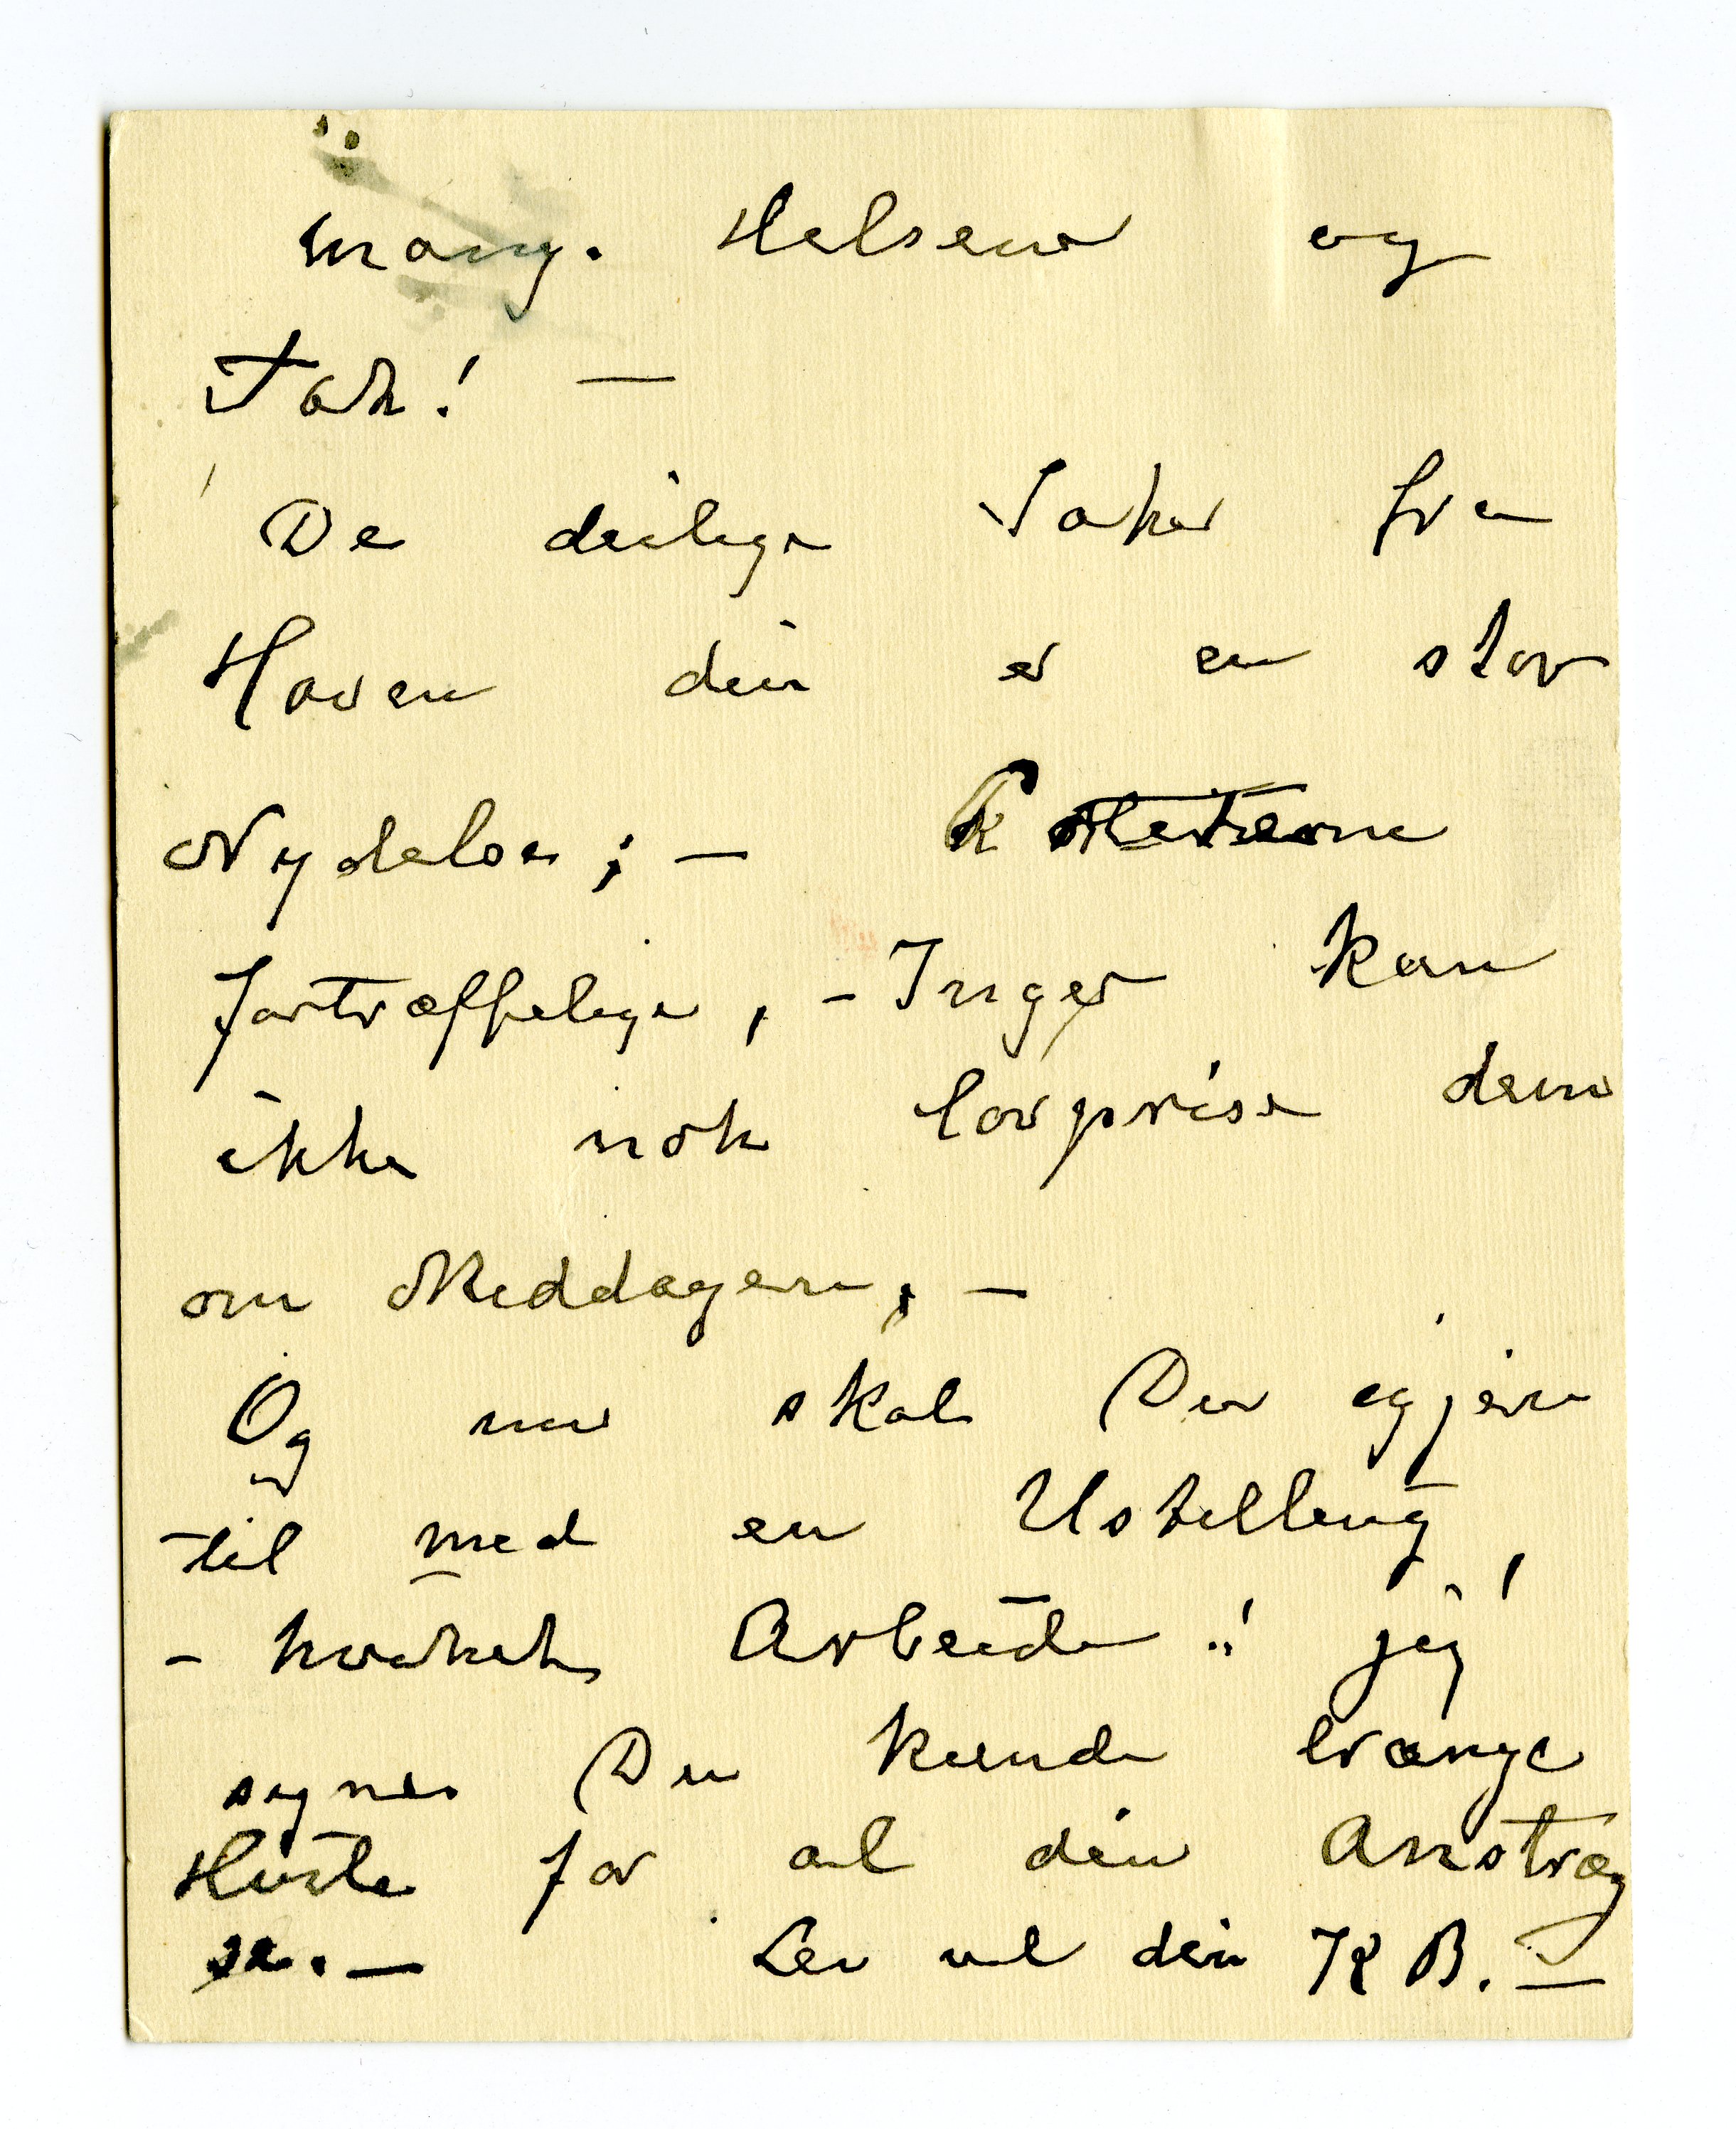 mange Helsener og
Tak! —
De deilige Saker fra
Haven din er en stor
Nydelse; —
fortræffelige, – Inger kan
ikke nok lovprise dem
om Middagen, —
Og nu skal Du igjen
til med en Ustilling,
– hvilket Arbeide!! jeg
synes Du kunde trænge
Hvile for al din Anstræng
se. — Lev vel din K B. —